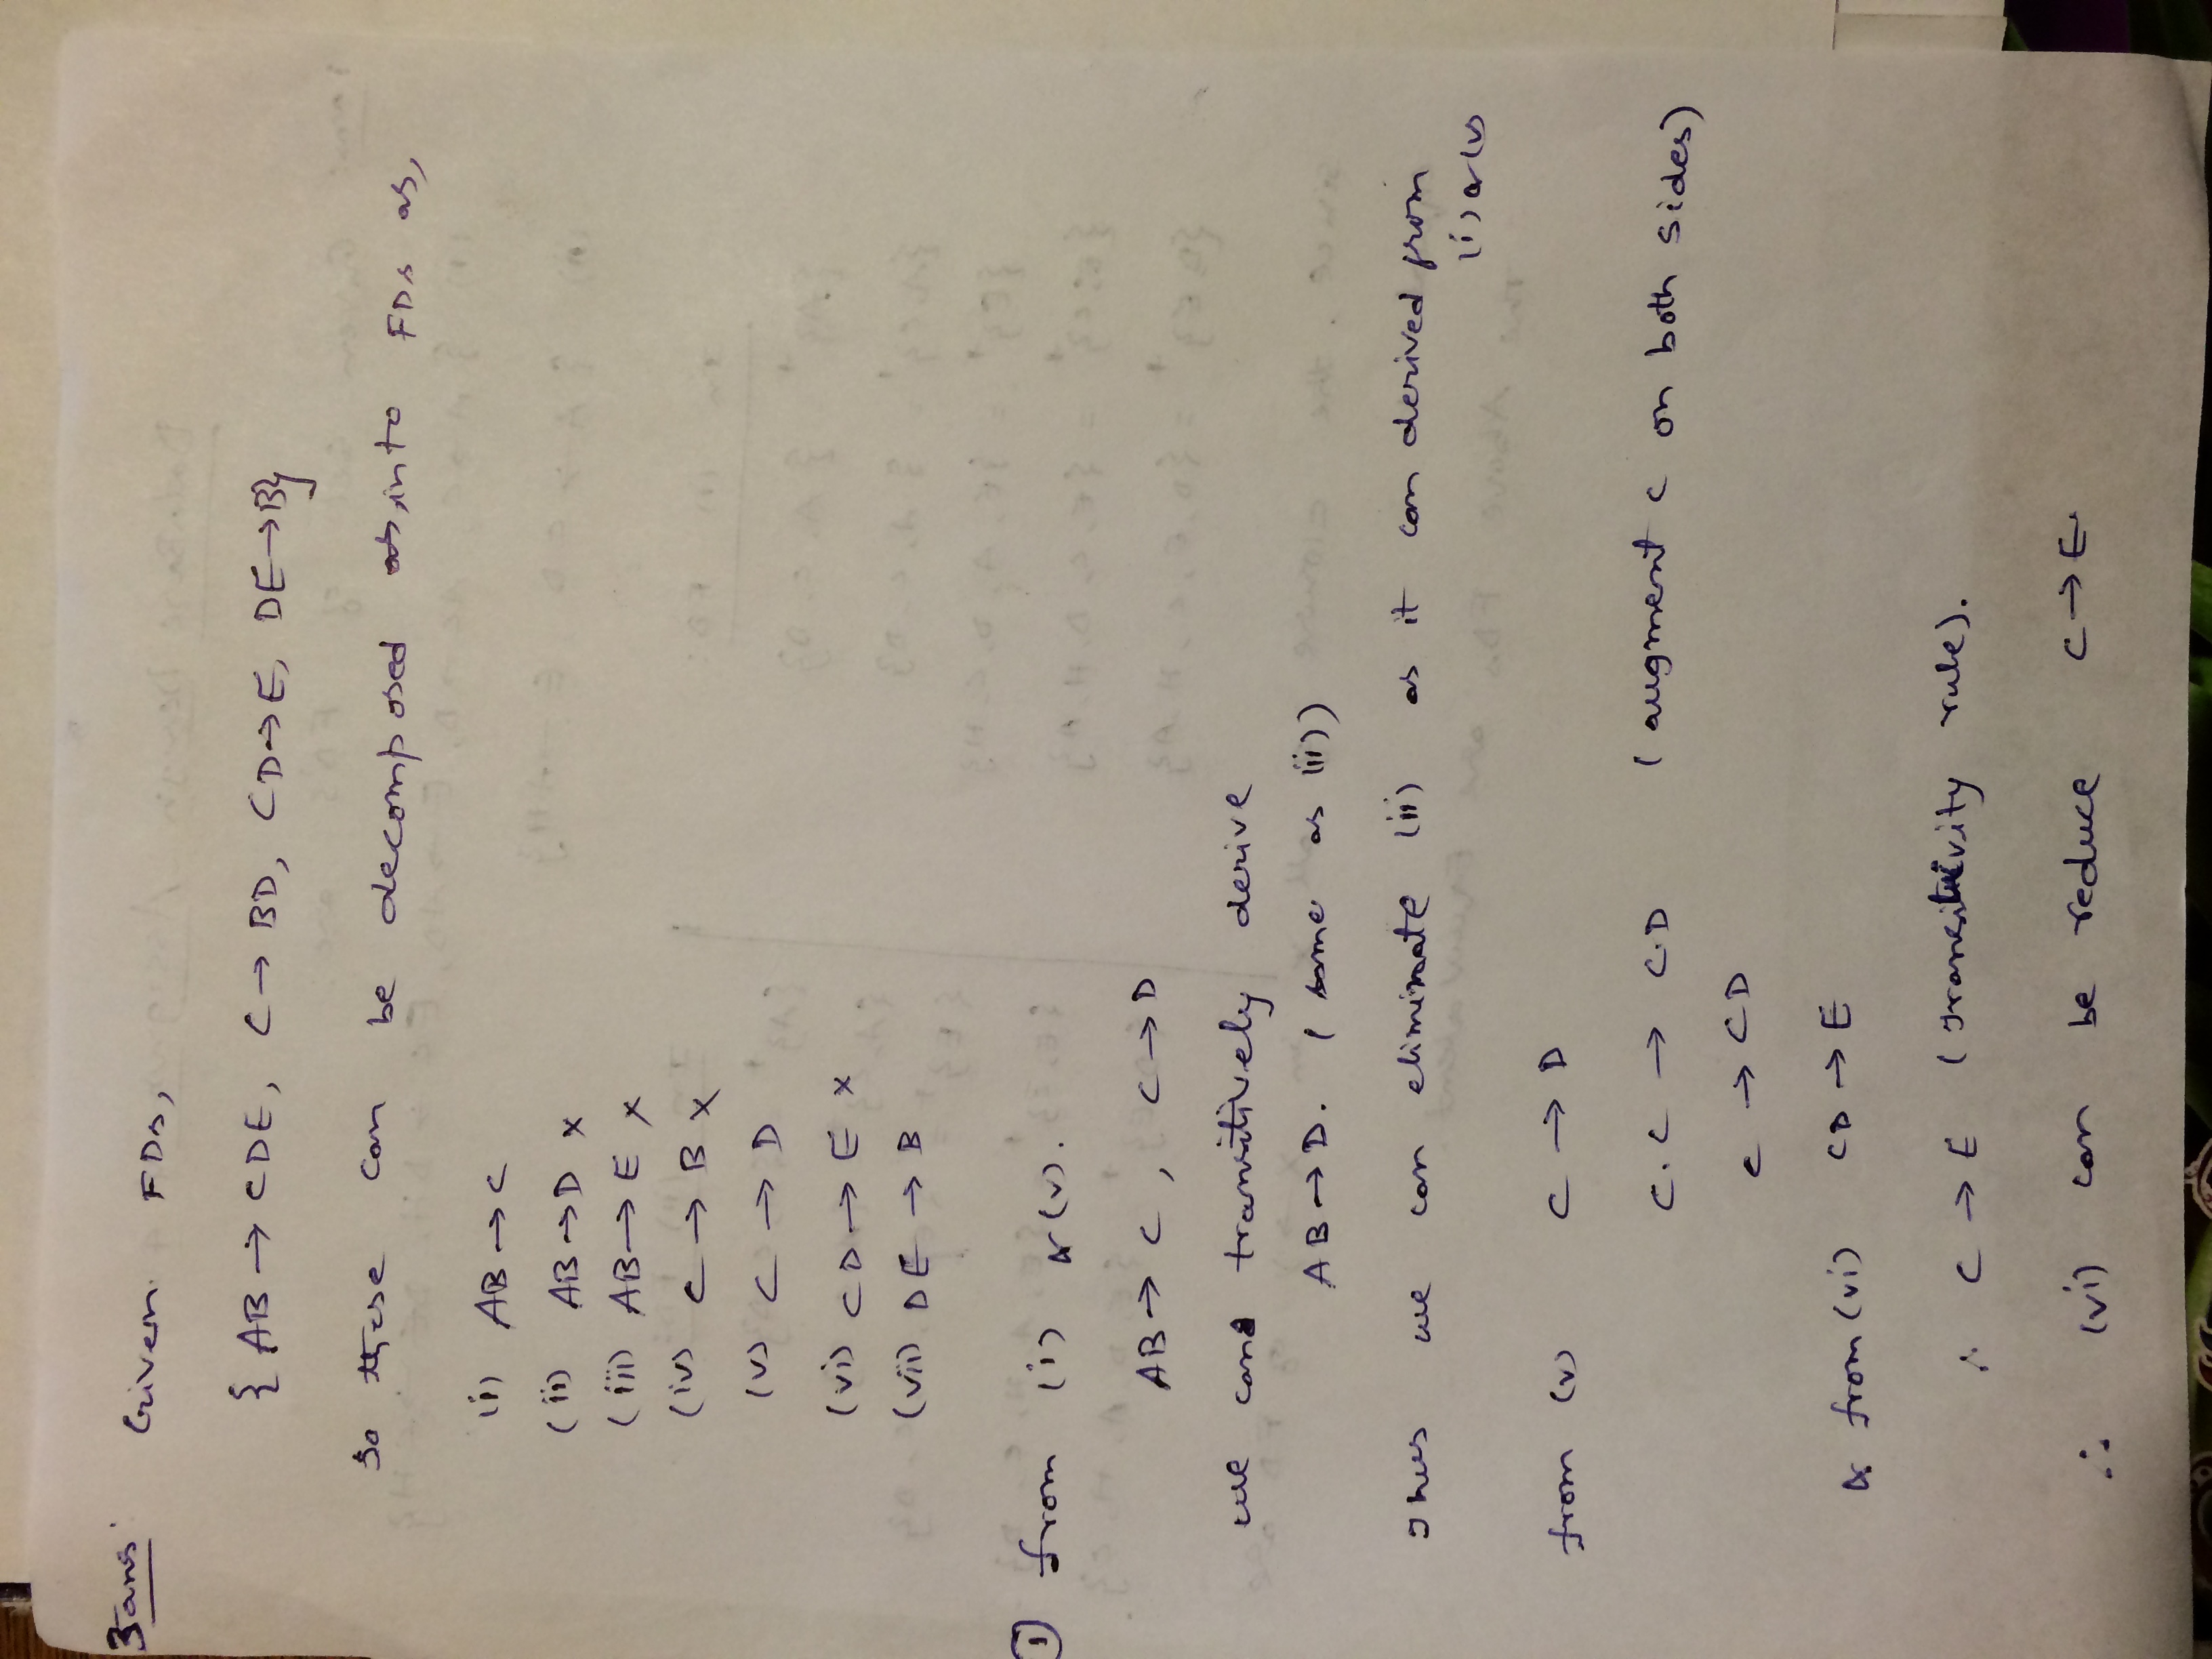 3 ans
Given FDs,
{ AB → CDE, C → BD, CD → E, DE → B}
So these can be decomposed into FDs as,
(i) AB → C
(ii) AB → D x
(iii) AB → E x
(iv) C → B x
(v) C → D
(vi) CD → E x
(vii) DE → B
① from (i) & (v).
AB → C , C → D
we can transitively derive
AB → D. ( same as (ii))
Thus we can eliminate (ii) as it can derived from
(i) & (v)
from (v) C → D
C.C → C.D ( augment C on both sides)
C → CD
& from (vi) CD → E
∴ C → E (Transitivity rule).
∴ (vi) can be reduce C → E.